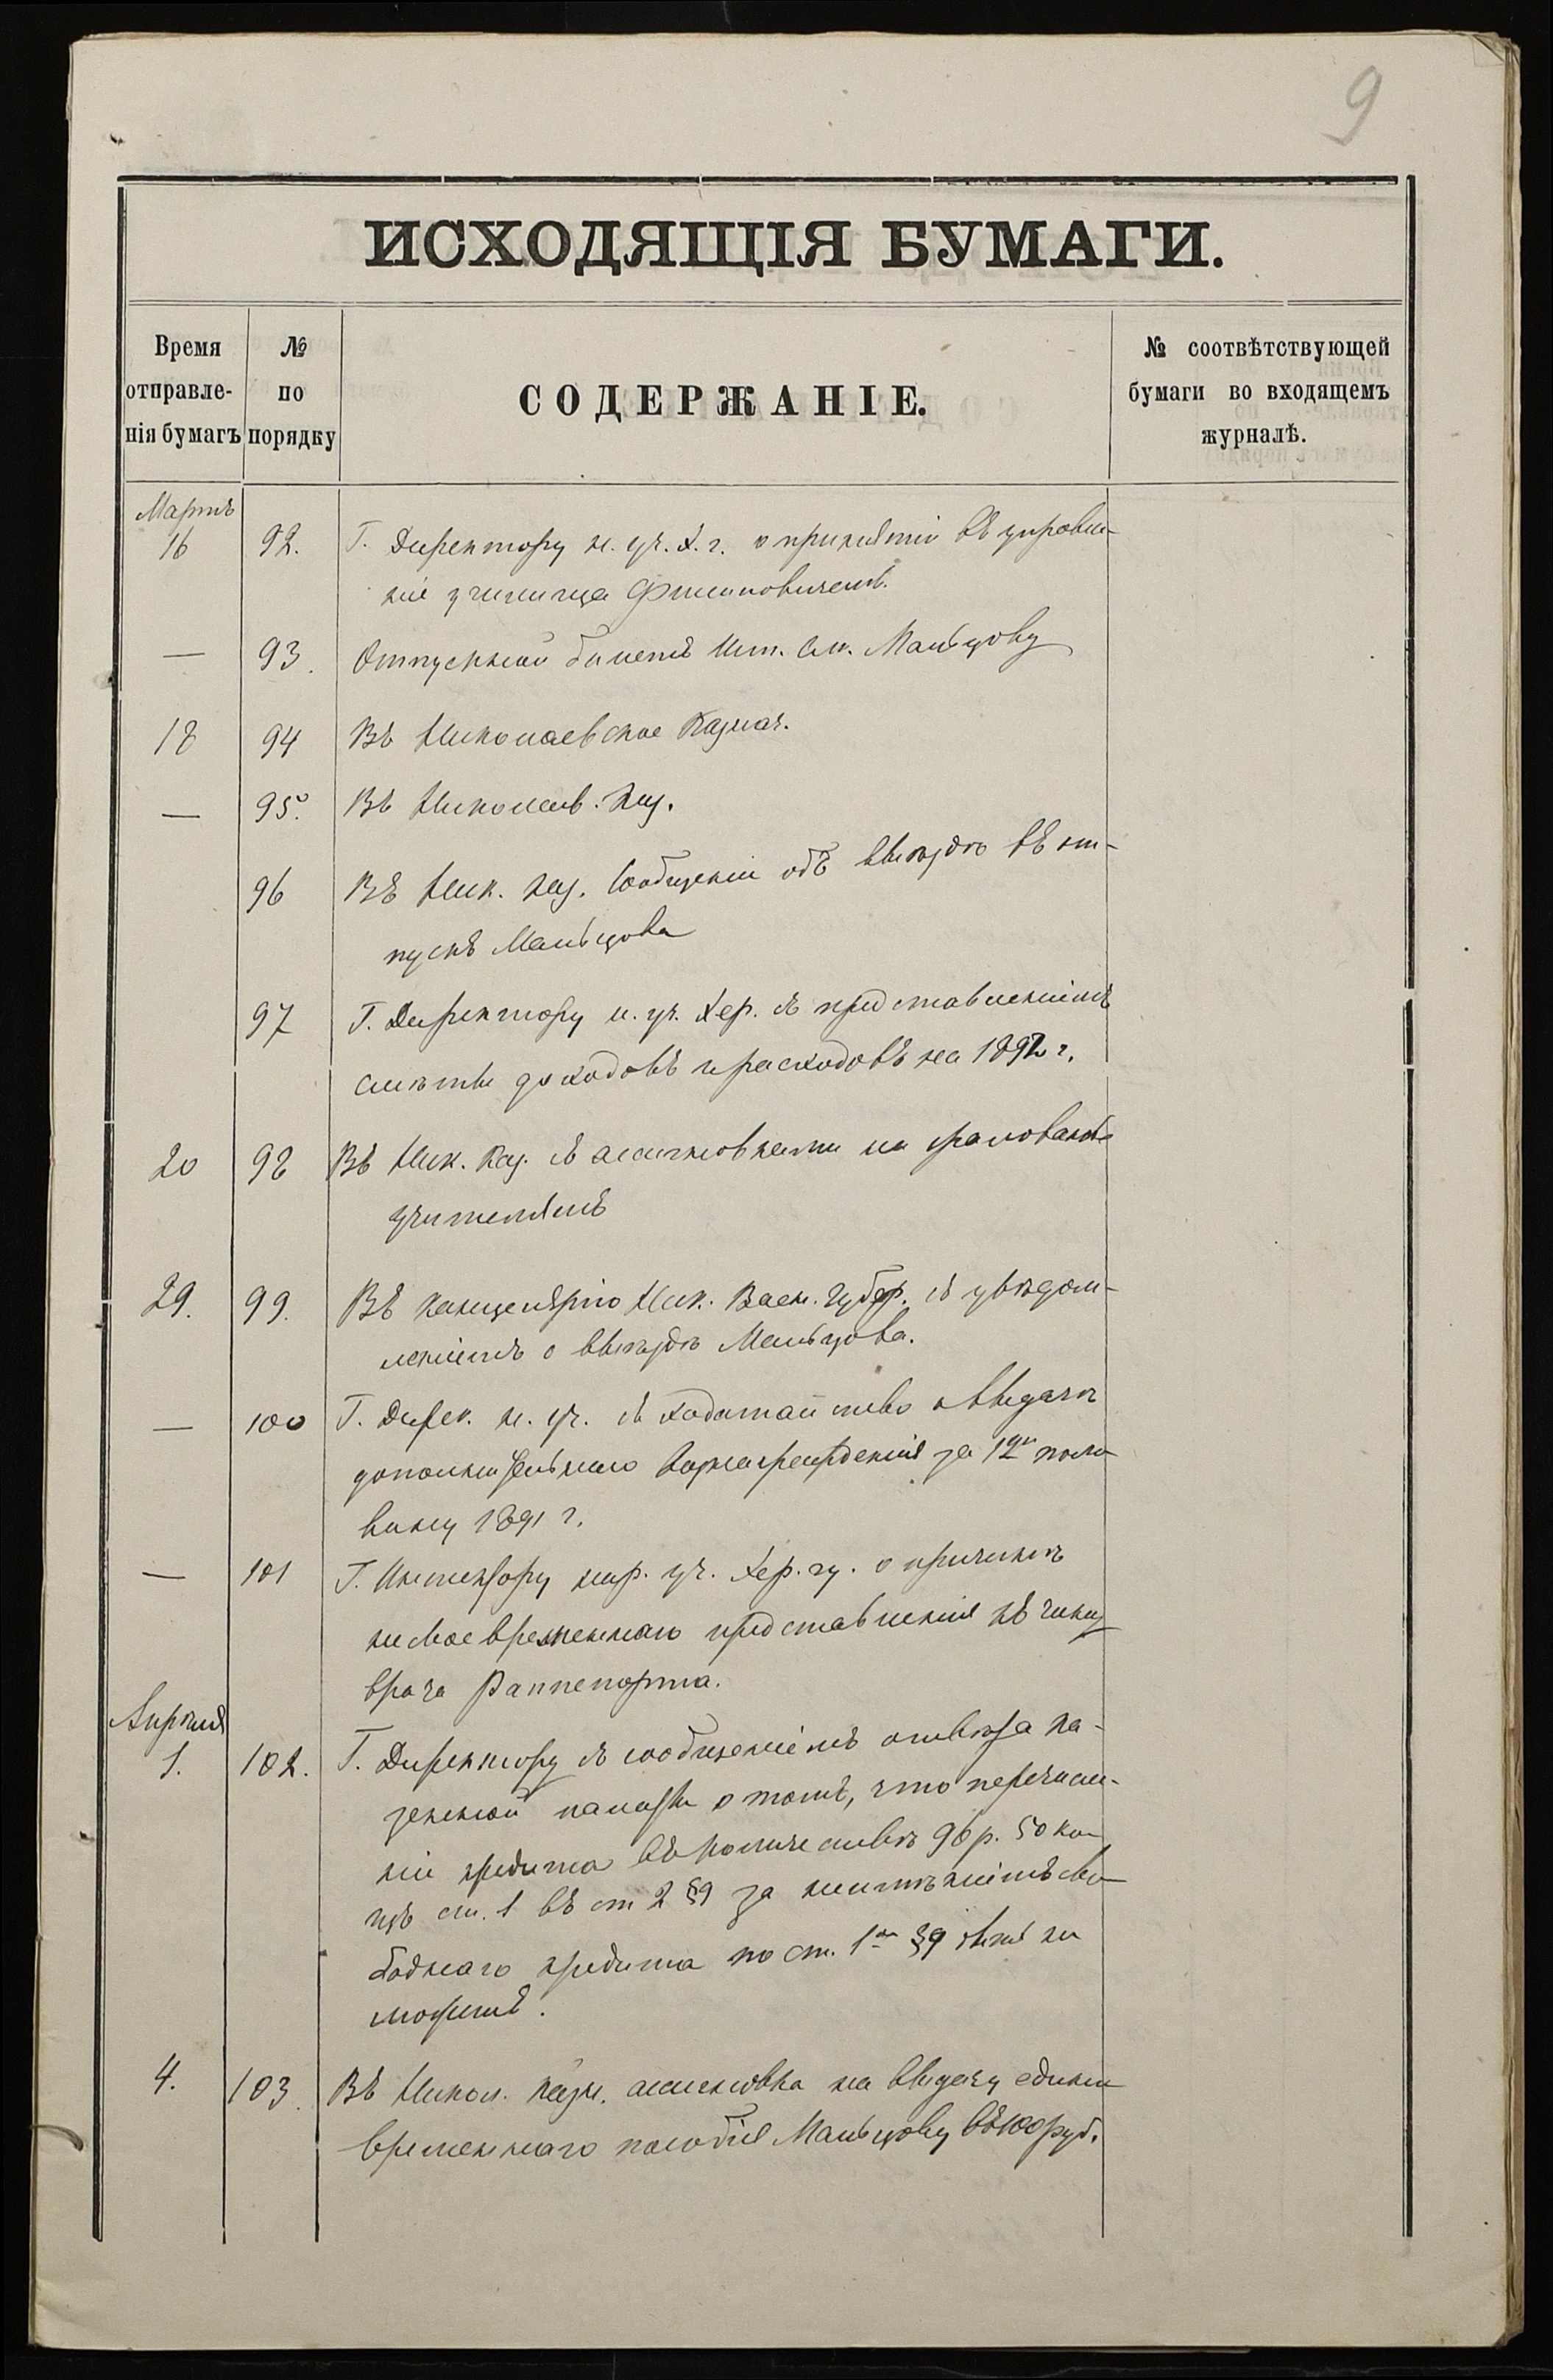 9
ИСХОДЯЩІЯ БУМАГИ.
Время отправле-нія бумагъ
№ по порядку
СОДЕРЖАНІЕ.
№ соотвѣтствующей бумаги во входящемъ журналѣ.
Мартъ
16 92. Г. Директору н. уч. Х. г. о принятіи въ управле-
ніе училища Филиповичемъ.
— 93. Отпускной билетъ Мальцову
18 94 Въ Николаевское Казнач.
— 95. Въ Николаев. Каз.
96 Въ Ник. Каз. Сообщеніи объ выѣздѣ въ от-
пускъ Мальцова
97 Г. Директору н. уч. Хер. съ представленіемъ
смѣты доходовъ и расходовъ на 1892 г.
20 98 Въ Ник. Каз. съ ассигновками на жалованье
учителямъ
29. 99. Въ канцелярію Ник. Воен. Губер. съ увѣдом-
леніемъ о выѣздѣ Мальцова.
— 100 Г. Дирек. н. уч. съ ходатайство о выдачѣ
дополнительнаго вознагражденія за 1ую поло
вину 1891 г.
— 101 Г. Инспектору нар. уч. Хер. гу. о причинѣ
несвоевременнаго представленія къ чину
врача Раппепорта.
Апрѣля
1. 102. Г. Директору съ сообщеніемъ отвѣта Ка-
зенной палаты о томъ, что перечисле-
ніе кредита въ количествѣ 96 р. 50 ко
изъ ст. 1 въ ст 2 §9 за неимѣніемъ сво
боднаго кредита по ст. 1ой §9 не
можетъ.
4. 103. Въ Никол. Казн. ассигновка на выдачу едино
временнаго пособія Мальцову въ 100 руб.